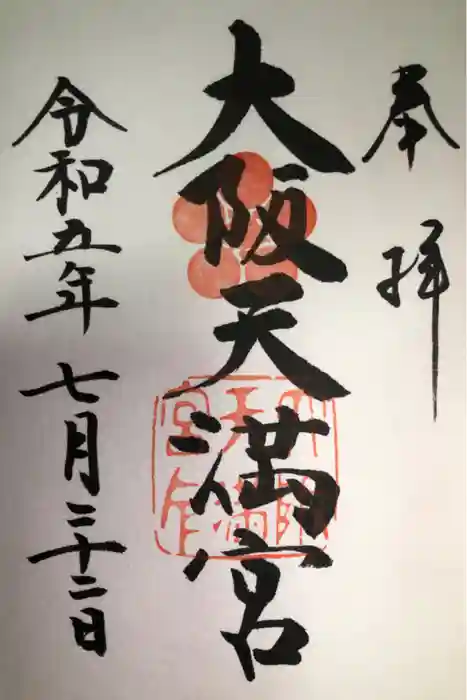 奉拝
大阪天満宮
令和五年七月二十二日